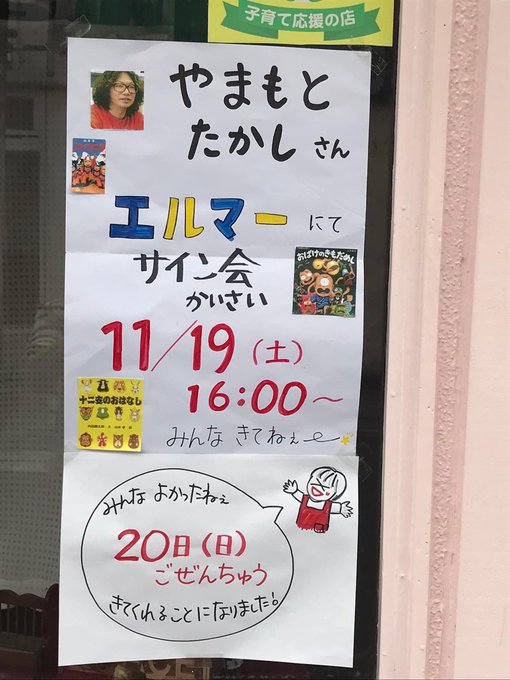 子育て応援の店
やまもと
たかし さん
エルマー にて
サイン会
かいさい
おばけのきもだめし
11/19(土)
16:00〜
十二支のおはなし
みんな きてねぇ〜
みんな よかったねぇ
20日(日)
ごぜんちゅう
きてくれることになりました!